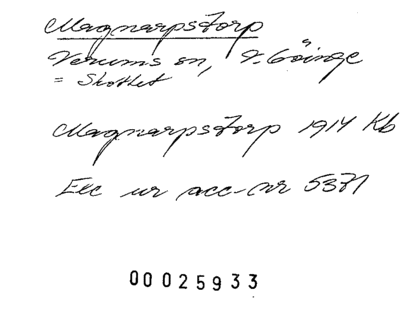 Magnarpstorp
Verums sn, V. Göinge
= Skottet
Magnarpstorp 1914 Kb
Exc ur acc-nr 5371
00025933